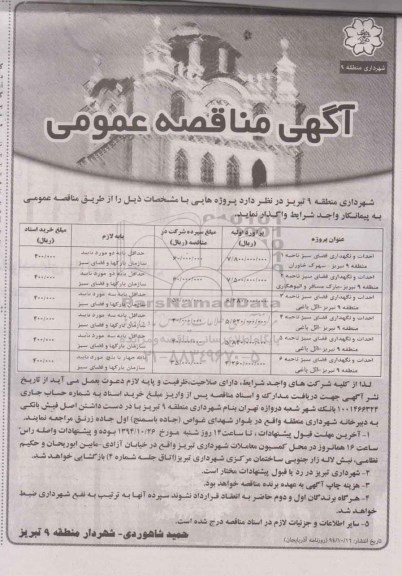 شهرداری منطقه ۹
آگهی مناقصه عمومی
شهرداری منطقه ۹ تبریز در نظر دارد پروژه هایی با مشخصات ذیل را از طریق مناقصه عمومی
به پیمانکار واجد شرایط واگذار نماید.
عنوان پروژه برآورد اولیه (ریال) مبلغ سپرده شرکت در مناقصه (ریال) پایه لازم مبلغ خرید اسناد (ریال)
احداث و نگهداری فضای سبز ناحیه
منطقه ۹ تبریز - شهرک خاوران
حداقل پایه دو مورد تایید
سازمان پارکها و فضای سبز
۴۰۰/۰۰۰
احداث و نگهداری فضای سبز ناحیه
منطقه ۹ تبریز -پارک مسافر و ائیوهکاری
حداقل پایه دو مورد تایید
سازمان پارکها و فضای سبز
۴۰۰/۰۰۰
احداث و نگهداری فضای سبز ناحیه
منطقه ۹ تبریز -ائل باغی
حداقل پایه سه مورد تایید
سازمان پارکها و فضای سبز
۴۰۰/۰۰۰
احداث و نگهداری فضای سبز ناحیه
منطقه ۹ تبریز -ائل باغی
حداقل پایه سه مورد تایید
سازمان پارکها و فضای سبز
۴۰۰/۰۰۰
احداث و نگهداری فضای سبز ناحیه
منطقه ۹ تبریز -ائل باغی
حداقل پایه سه مورد تایید
سازمان پارکها و فضای سبز
۴۰۰/۰۰۰
احداث و نگهداری فضای سبز ناحیه
منطقه ۹ تبریز -ائل باغی
پایه چهار یا پنج مورد تایید
سازمان پارکها و فضای سبز
۴۰۰/۰۰۰
ParsNamadData
۰۲۱-۸۸۳۴۹۶۷۰-۵
لذا از کلیه شرکت های واجد شرایط، دارای صلاحیت،ظرفیت و پایه لازم دعوت بعمل می آید از تاریخ
نشر آگهی جهت دریافت مدارک و اسناد مناقصه پس از واریز مبلغ خرید اسناد به شماره حساب جاری
۱۰۰۱۲۶۶۳۲۴ بانک شهر شعبه دروازه تهران بنام شهرداری منطقه ۹ تبریز با در دست داشتن اصل فیش بانکی
به دبیرخانه شهرداری منطقه واقع در بلوار شهدای غواص (جاده باسمنج) اول جاده زرنق مراجعه نمایند.
۱- آخرین مهلت قبول پیشنهادات ، تا ساعت ۱۴ روز شنبه مورخ ۱۳۹۴/۱۰/۲۶ بوده و پیشنهادات واصله راس
ساعت ۱۶ همانروز در محل کمیسیون معاملات شهرداری تبریز واقع در خیابان آزادی -مابین ابوریحان و حکیم
نظامی، نبش لاله زار جنوبی ساختمان مرکزی شهرداری تبریز(اتاق جلسه شماره ۴) بازگشایی خواهد شد.
۲- شهرداری تبریز در رد یا قبول پیشنهادات مختار است.
۳- هزینه چاپ آگهی به عهده برنده مناقصه خواهد بود.
۴- هرگاه برندگان اول و دوم حاضر به انعقاد قرارداد نشوند سپرده آنها به ترتیب به نفع شهرداری ضبط
خواهد شد.
۵- سایر اطلاعات و جزئیات لازم در اسناد مناقصه درج شده است.
حمید شاهوردی- شهردار منطقه ۹ تبریز
تاریخ انتشار: ۹۴/۱۰/۱۶ (روزنامه آذربایجان)